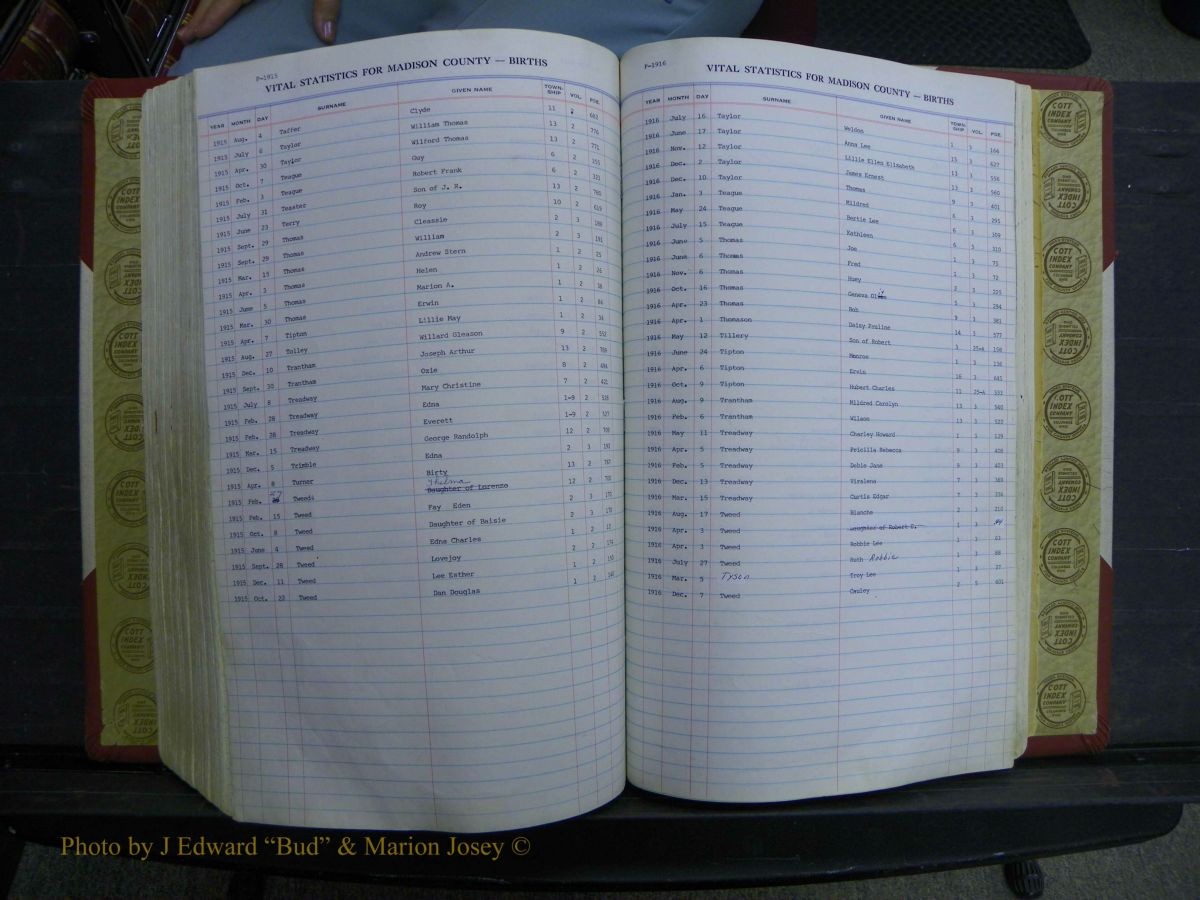 P-1915
VITAL STATISTICS FOR MADISON COUNTY — BIRTHS
YEAR MONTH DAY SURNAME GIVEN NAME TOWN-SHIP VOL. PGE.
1915 Aug. 4 Taffer Clyde 11 2 682
1915 July 6 Taylor William Thomas 13 2 776
1915 Apr. 30 Taylor Wilford Thomas 13 2 771
1915 Oct. 7 Teague Guy 6 2 355
1915 Feb. 3 Teague Robert Frank 6 2 323
1915 July 31 Teaster Son of J. R. 13 2 785
1915 June 23 Terry Roy 10 2 619
1915 Sept. 29 Thomas Cleassie 2 3 188
1915 Sept. 29 Thomas William 2 3 191
1915 Mar. 15 Thomas Andrew Stern 1 2 25
1915 Apr. 3 Thomas Helen 1 2 26
1915 June 5 Thomas Marion A. 1 2 38
1915 Mar. 30 Thomas Erwin 1 2 84
1915 Apr. 7 Tipton Lillie May 1 2 34
1915 Aug. 27 Tolley Willard Gleason 9 2 552
1915 Dec. 10 Trantham Joseph Arthur 13 2 789
1915 Sept. 30 Trantham Ozie 8 2 494
1915 July 8 Treadway Mary Christine 7 2 421
1915 Feb. 28 Treadway Edna 1-9 2 526
1915 Feb. 28 Treadway Everett 1-9 2 527
1915 Mar. 15 Treadway George Randolph 12 2 708
1915 Dec. 5 Trimble Edna 2 3 193
1915 Apr. 8 Turner Birty 13 2 767
1915 Feb. 27 Tweed Thelma Daughter of Lorenzo 12 2 700
1915 Feb. 15 Tweed Fay Eden 2 3 170
1915 Oct. 8 Tweed Daughter of Baisie 2 3 178
1915 June 4 Tweed Edna Charles 1 2 12
1915 Sept. 28 Tweed Lovejoy 2 2 174
1915 Dec. 11 Tweed Lee Esther 1 2
1915 Oct. 22 Tweed Dan Douglas 1 2
P-1916
VITAL STATISTICS FOR MADISON COUNTY — BIRTHS
YEAR MONTH DAY SURNAME GIVEN NAME TOWN-SHIP VOL. PGE.
1916 July 16 Taylor Weldon 1 3 166
1916 June 17 Taylor Anna Lee 15 3 627
1916 Nov. 12 Taylor Lillie Ellen Elizabeth 13 3 556
1916 Dec. 2 Taylor James Ernest 13 3 560
1916 Dec. 10 Taylor Thomas 9 3 401
1916 Jan. 3 Teague Mildred 6 3 295
1916 May 24 Teague Bertie Lee 6 3 309
1916 July 15 Teague Kathleen 6 3 310
1916 June 5 Thomas Joe 1 3 73
1916 June 6 Thomas Fred 1 3 72
1916 Nov. 6 Thomas Huey 2 3 225
1916 Oct. 16 Thomas Geneva 5 3 294
1916 Apr. 23 Thomas Bob 9 3 381
1916 Apr. 1 Thomason Daisy Pauline 14 3 577
1916 May 12 Tillery Son of Robert 3 25-A 108
1916 June 24 Tipton Monroe 1 3 136
1916 Apr. 6 Tipton Ervin 16 3 645
1916 Oct. 9 Tipton Hubert Charles 11 25-A 532
1916 Aug. 9 Trantham Mildred Carolyn 13 3 540
1916 Feb. 6 Trantham Wilson 13 3 520
1916 May 11 Treadway Charley Howard 1 3 129
1916 Apr. 5 Treadway Pricilla Rebecca 9 3 408
1916 Feb. 5 Treadway Debie Jane 9 3 403
1916 Dec. 13 Treadway Viralena 7 3 369
1916 Mar. 15 Treadway Curtis Edgar 7 3 336
1916 Aug. 17 Tweed Blanche 2 3 210
1916 Apr. 3 Tweed Daughter of Robert 1 3
1916 Apr. 3 Tweed Robbie Lee 1 3 63
1916 July 27 Tweed Ruth Robbie 1 3 88
1916 Mar. 5 Tyson Troy Lee 1 3 37
1916 Dec. 7 Tweed Cauley 2 5 401
COTT INDEX COMPANY
Photo by J Edward “Bud” & Marion Josey ©